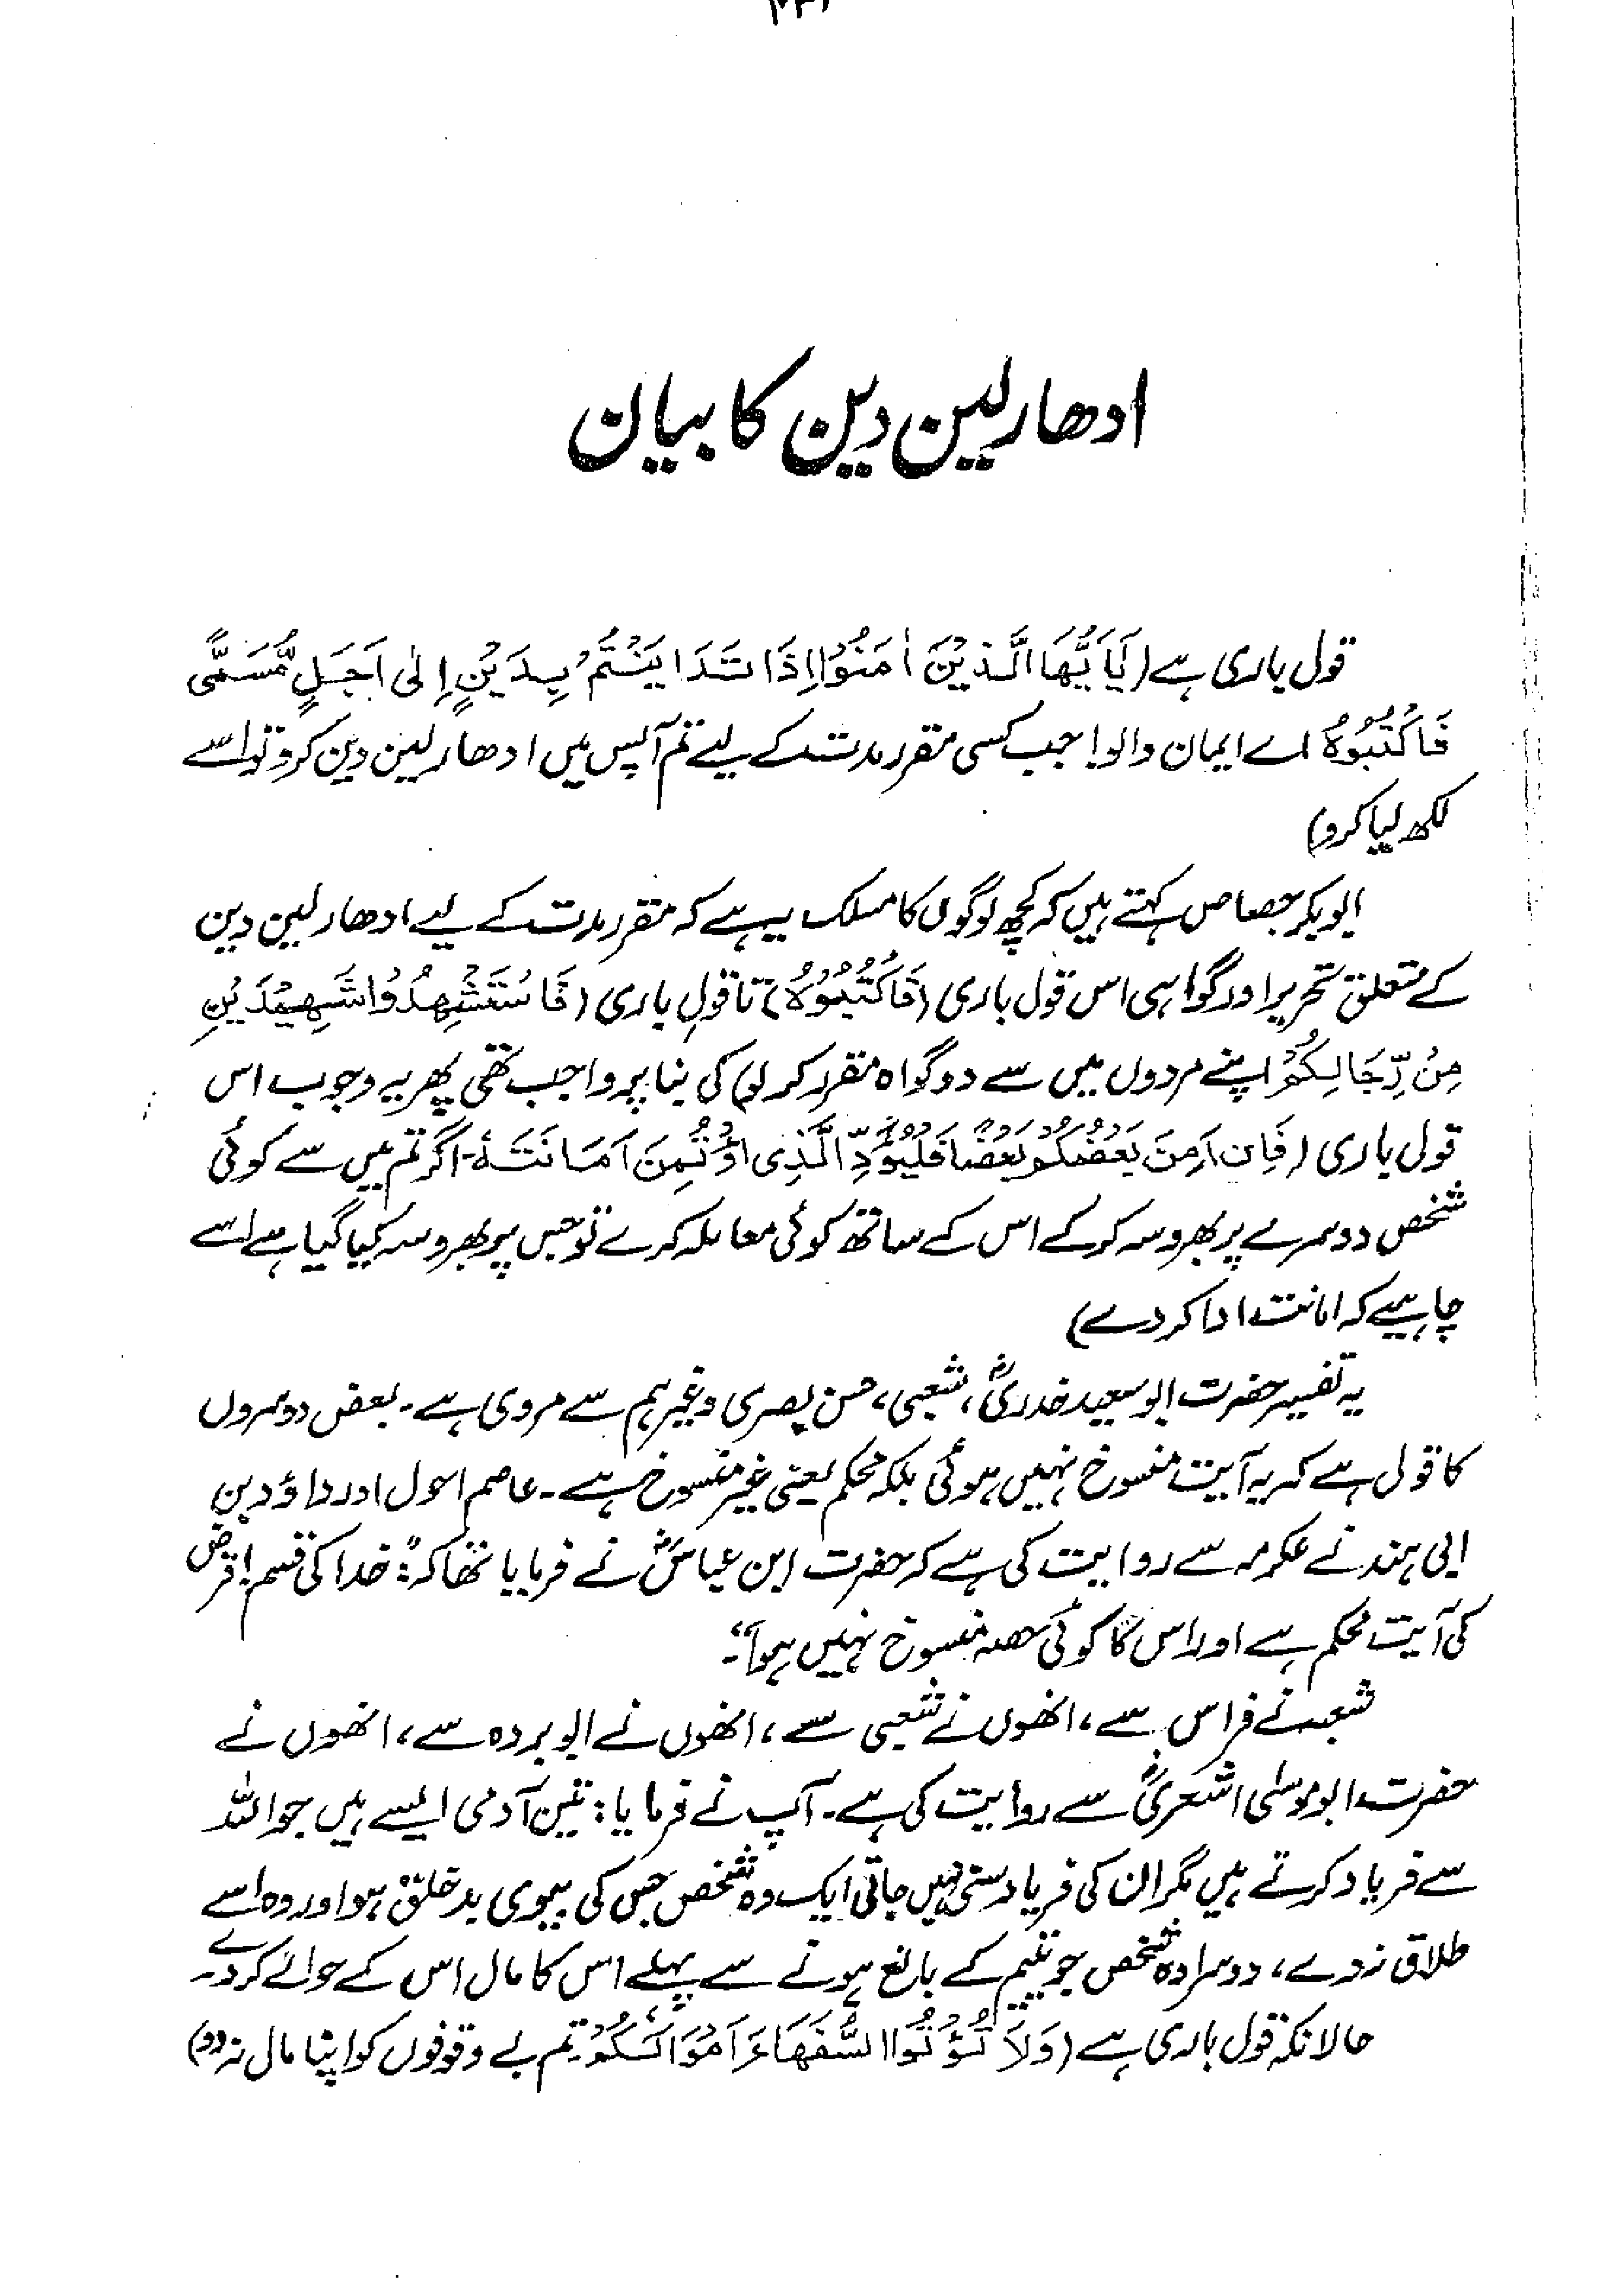 ادھار لین دین کا بیان
قول باری ہے (يَا َيُّهَا الَّذِيْنَ اٰمَنُوْا اِذَا تَدَايَنْتُمْ بِدَيْنٍ اِلٰى اَجَلٍ مُّسَمًّى
فَاكْتُبُوْهُ اے ایمان والو! جب کسی مقرر مدت کے لیے تم آپس میں ادھار لین دین کرو تو اسے
لکھ لیا کرو)
ابوبکر جصاص کہتے ہیں کہ کچھ لوگوں کا مسلک یہ ہے کہ مقرر مدت کے لیے ادھار لین دین
کے متعلق تحریر اور گواہی اس قول باری (فَاكْتُبُوْهُ) تا قولِ باری (فَاسْتَشْهِدُوْا شَهِيْدَيْنِ
مِنْ رِّجَالِكُمْ اپنے مردوں میں سے دو گواہ مقرر کر لو) کی بنا پر واجب تھی پھر یہ وجوب اس
قول باری (فَاِنْ اَمِنَ بَعْضُكُمْ بَعْضًا فَلْيُؤَدِّ الَّذِى اؤْتُمِنَ اَمَانَتَهٗ۔ اگر تم میں سے کوئی
شخص دوسرے پر بھروسہ کرکے اس کے ساتھ کوئی معاملہ کرے تو جس پر بھروسہ کیا گیا ہے اسے
چاہیے کہ امانت ادا کر دے)
یہ تفسیر حضرت ابو سعید خدریؓ، شعبی، حسن بصری وغیرہم سے مروی ہے۔ بعض دوسروں
کا قول ہے کہ یہ آیت منسوخ نہیں ہوئی بلکہ محکم یعنی غیر منسوخ ہے۔ عاصم احول اور داؤد بن
ابی ہند نے عکرمہ سے روایت کی ہے کہ حضرت ابن عباسؓ نے فرمایا تھا کہ: "خدا کی قسم! قرض
کی آیت محکم ہے اور اس کا کوئی حصہ منسوخ نہیں ہوا"۔
شعبہ نے فراس سے، انھوں نے شعبی سے، انھوں نے ابو بردہ سے، انھوں نے
حضرت ابو موسٰی اشعریؓ سے روایت کی ہے۔ آپ نے فرمایا: تین آدمی ایسے ہیں جو اللہ
سے فریاد کرتے ہیں مگر ان کی فریاد سنی نہیں جاتی ایک وہ شخص جس کی بیوی بد خلق ہو اور وہ اسے
طلاق نہ دے، دوسرا وہ شخص جو یتیم کے بالغ ہونے سے پہلے اس کا مال اس کے حوالے کر دے۔
حالانکہ قول باری ہے (وَلَا تُؤْتُوا السُّفَهَاءَ اَمْوَالَكُمْ تم بے وقوفوں کو اپنا مال نہ دو)